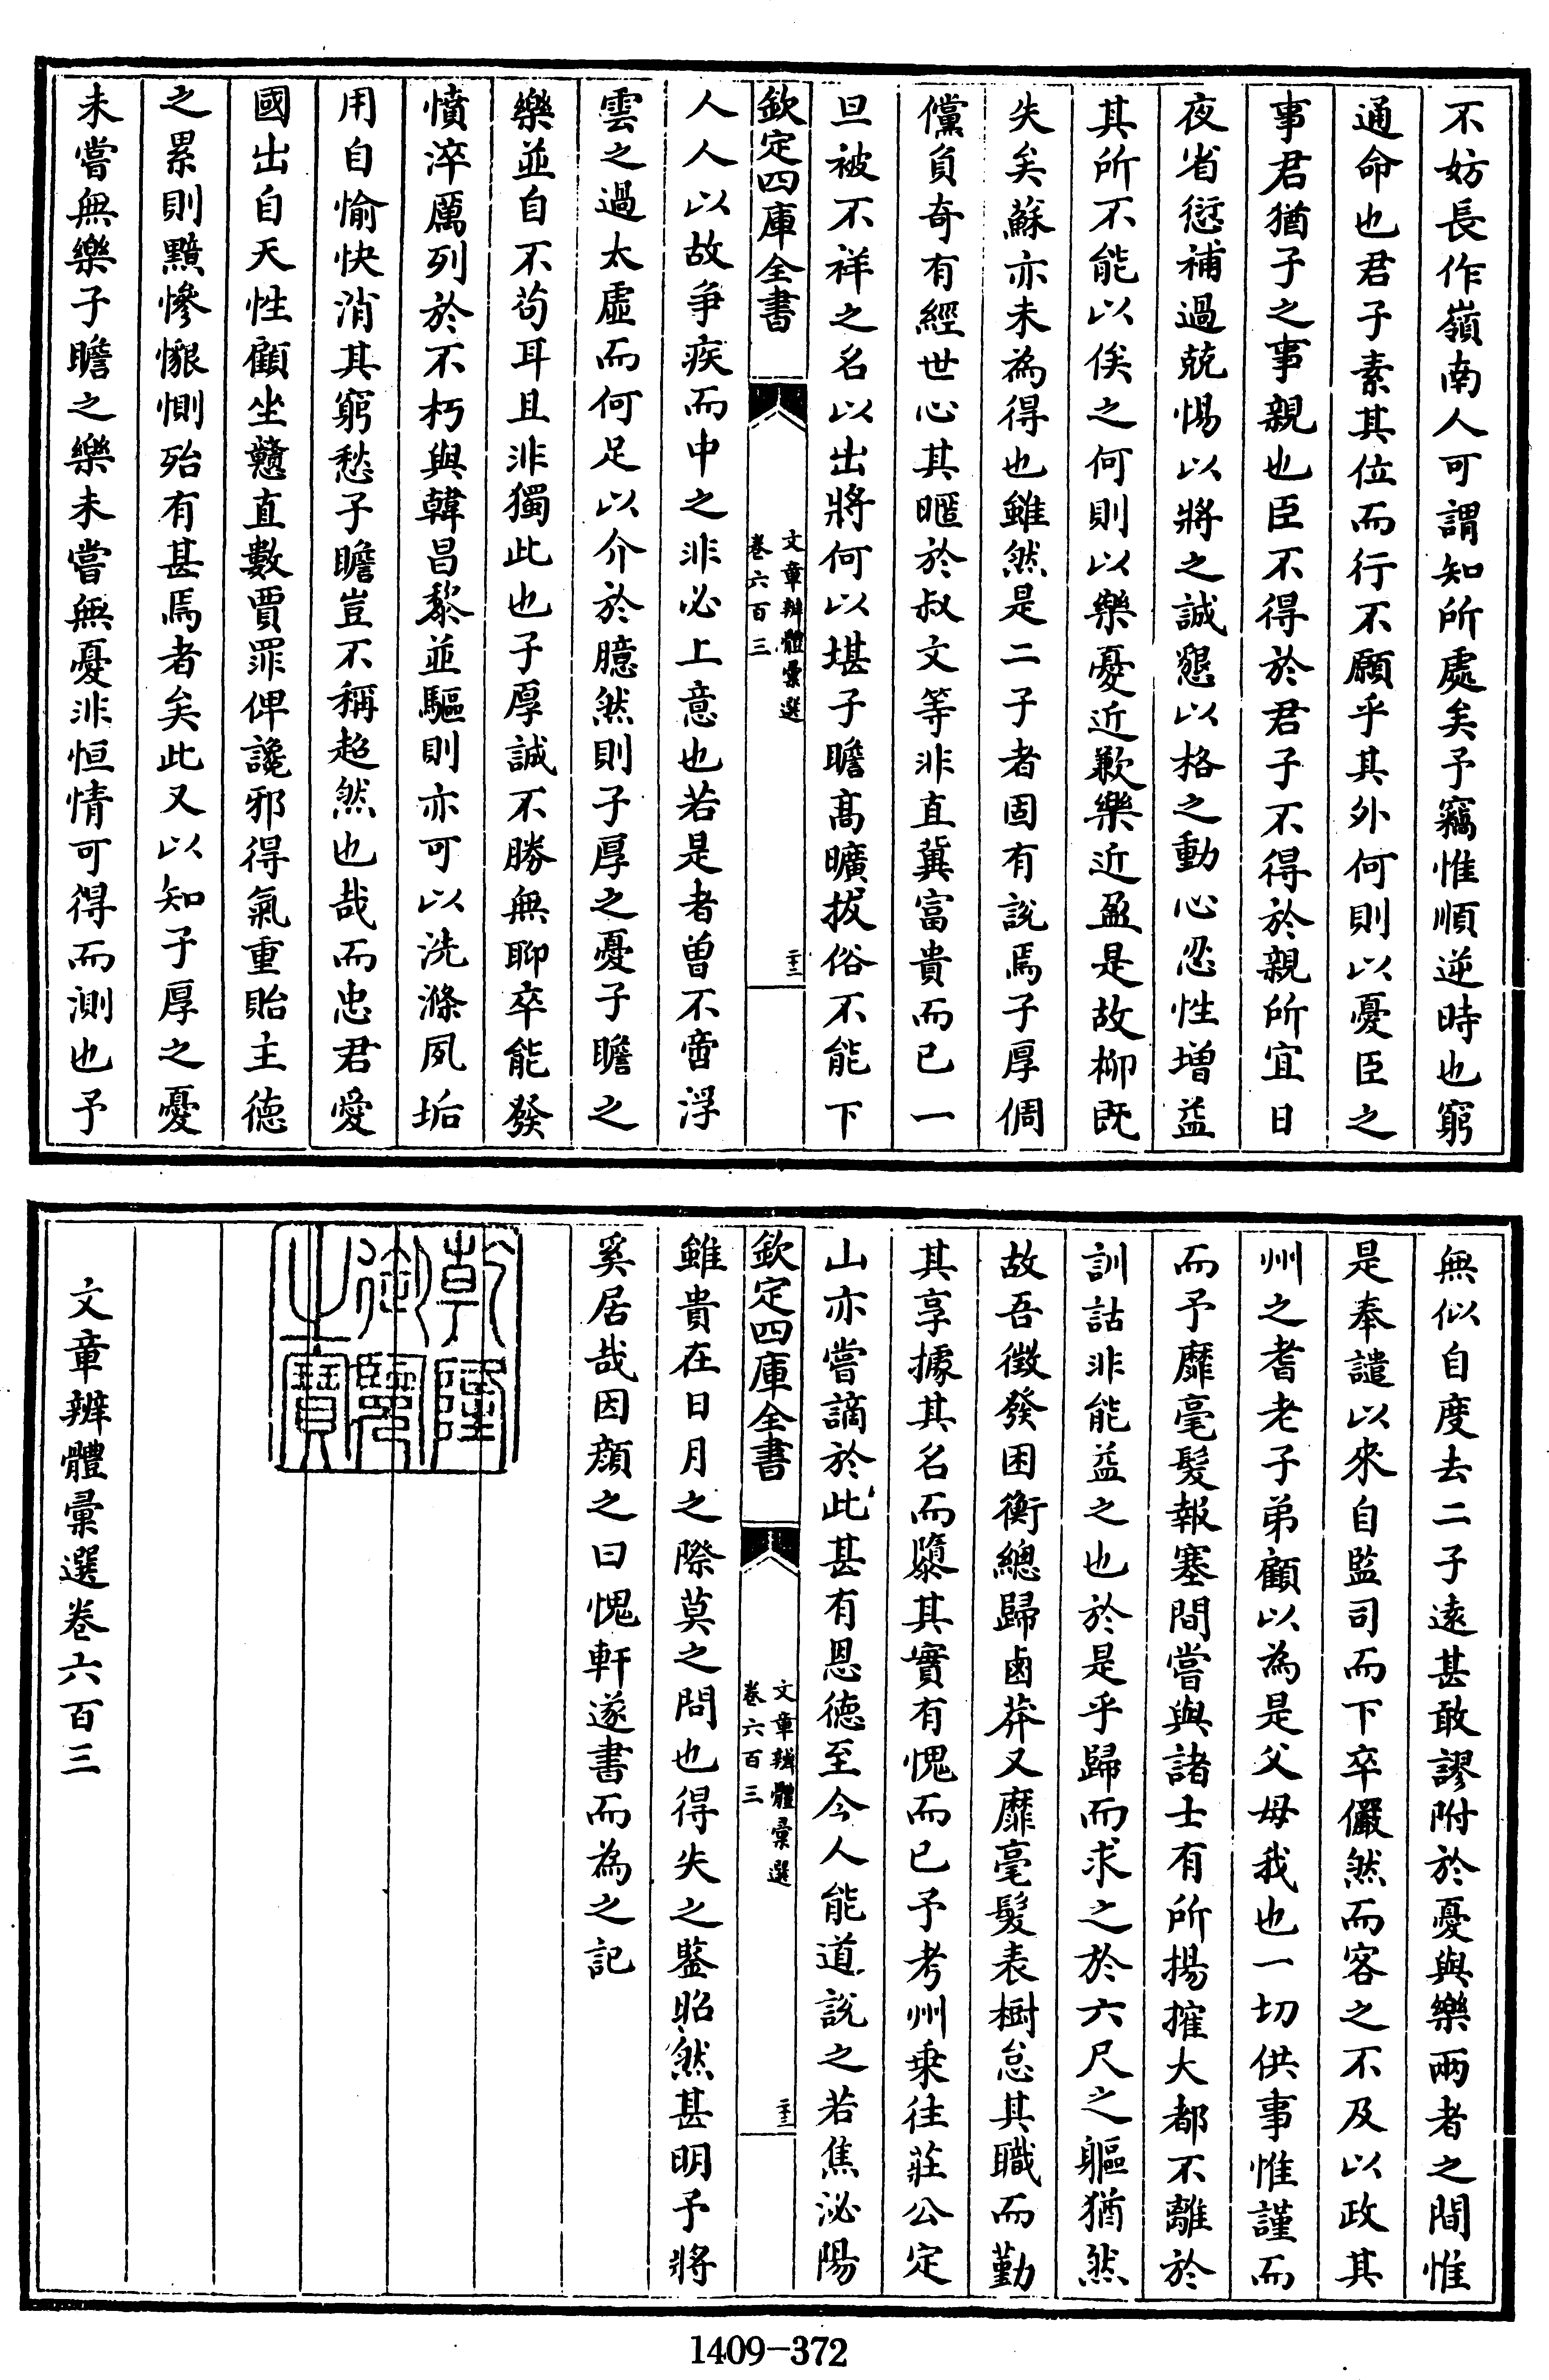 不妨長作嶺南人可謂知所處矣予竊惟順逆時也窮
通命也君子素其位而行不願乎其外何則以憂臣之
事君猶子之事親也臣不得於君子不得於親所宜日
夜省愆補過兢惕以將之誠懇以格之動心忍性增益
其所不能以俟之何則以樂憂近歉樂近盈是故柳既
失矣蘇亦未為得也雖然是二子者固有説焉子厚倜
儻負奇有經世心其暱於叔文等非直冀富貴而已一
旦被不祥之名以出將何以堪子瞻髙曠拔俗不能下
欽定四庫全書
文章辨體彙選
卷六百三
二十二
人人以故爭疾而中之非必上意也若是者曽不啻浮
雲之過太虛而何足以介於臆然則子厚之憂子瞻之
樂並自不茍耳且非獨此也子厚誠不勝無聊卒能發
憤淬厲列於不朽與韓昌黎並驅則亦可以洗滌夙垢
用自愉快消其窮愁子瞻豈不稱超然也哉而忠君愛
國出自天性顧坐戇直數賈罪俾讒邪得氣重貽主德
之累則黯慘懇惻殆有甚焉者矣此又以知子厚之憂
未嘗無樂子瞻之樂未嘗無憂非恒情可得而測也予
無似自度去二子遠甚敢謬附於憂與樂兩者之間惟
是奉譴以來自監司而下卒儼然而客之不及以政其
州之耆老子弟顧以為是父母我也一切供事惟謹而
而予靡毫髮報塞間嘗與諸士有所揚搉大都不離於
訓詁非能益之也於是乎歸而求之於六尺之軀猶然
故吾徴發困衡總歸鹵莽又靡毫髮表樹怠其職而勤
其享據其名而隳其實有愧而已予考州乗往莊公定
山亦嘗謫於此甚有恩德至今人能道説之若焦泌陽
欽定四庫全書
文章辨體彙選
卷六百三
二十三
雖貴在日月之際莫之問也得失之鑒昭然甚明予將
奚居哉因顔之曰愧軒遂書而為之記
乾隆
御覽
之寶
文章辨體彙選卷六百三
1409-372